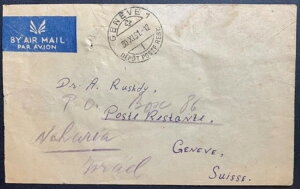 BY AIR MAIL
PAR AVION
GENÈVE 1
DÉPÔT POSTE REST.
Dr. A. Rushdy,
P.O. Box 86
Poste Restante,
Naharia
Israel
Geneve,
Suisse.